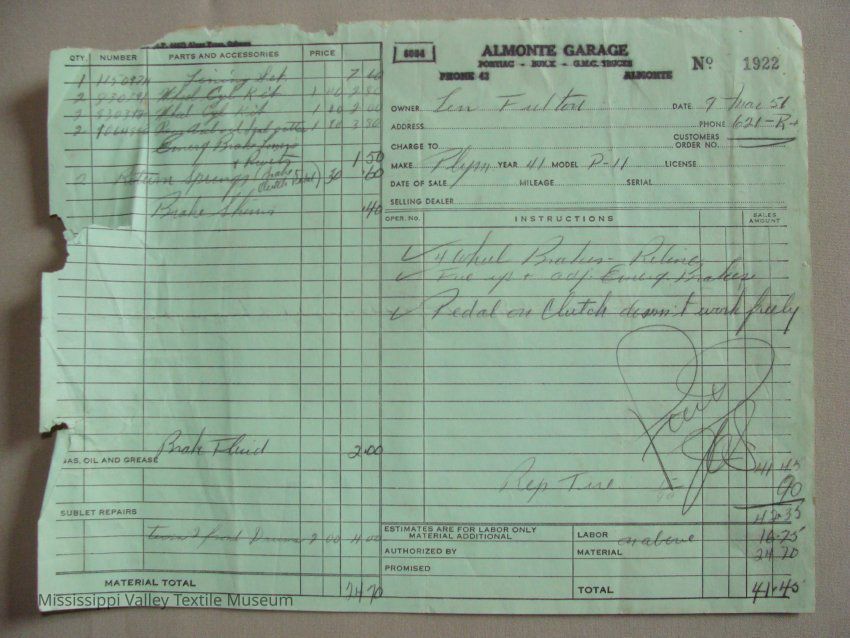 ALMONTE GARAGE
6084
PONTIAC - BUICK - G.M.C. TRUCKS
PHONE 43 ALMONTE
Nº 1922
OWNER Len Fulton DATE 9 Mar 51
ADDRESS PHONE 621-R
CHARGE TO CUSTOMERS ORDER NO.
MAKE Plym YEAR 41 MODEL P-11 LICENSE
DATE OF SALE MILEAGE SERIAL
SELLING DEALER
OPER. NO. INSTRUCTIONS SALES AMOUNT
✓ 4 Wheel Brakes - Reline
✓ Free up + adj. Emerg Brakes
✓ Pedal on Clutch doesn't work freely
Paid
41.45
Rep Tire 90
42.35
ESTIMATES ARE FOR LABOR ONLY
MATERIAL ADDITIONAL
AUTHORIZED BY
PROMISED
LABOR on above 16.75
MATERIAL 24.70
TOTAL 41.45
QTY. NUMBER PARTS AND ACCESSORIES PRICE
1 Lining Set 7.60
2 Whel Cyl Kit 1 40 2.80
2 Whel Cyl Kit 1 00 2.00
2 1 90 3.80
Emerg Brake
+ Rivets 1.50
2 Return Springs (Brake Clutch Pedal) 30 .60
Brake Shims .40
Brake Fluid 2.00
GAS, OIL AND GREASE
SUBLET REPAIRS
turn 2 front Drums 2 00 4.00
MATERIAL TOTAL 24.70
Mississippi Valley Textile Museum